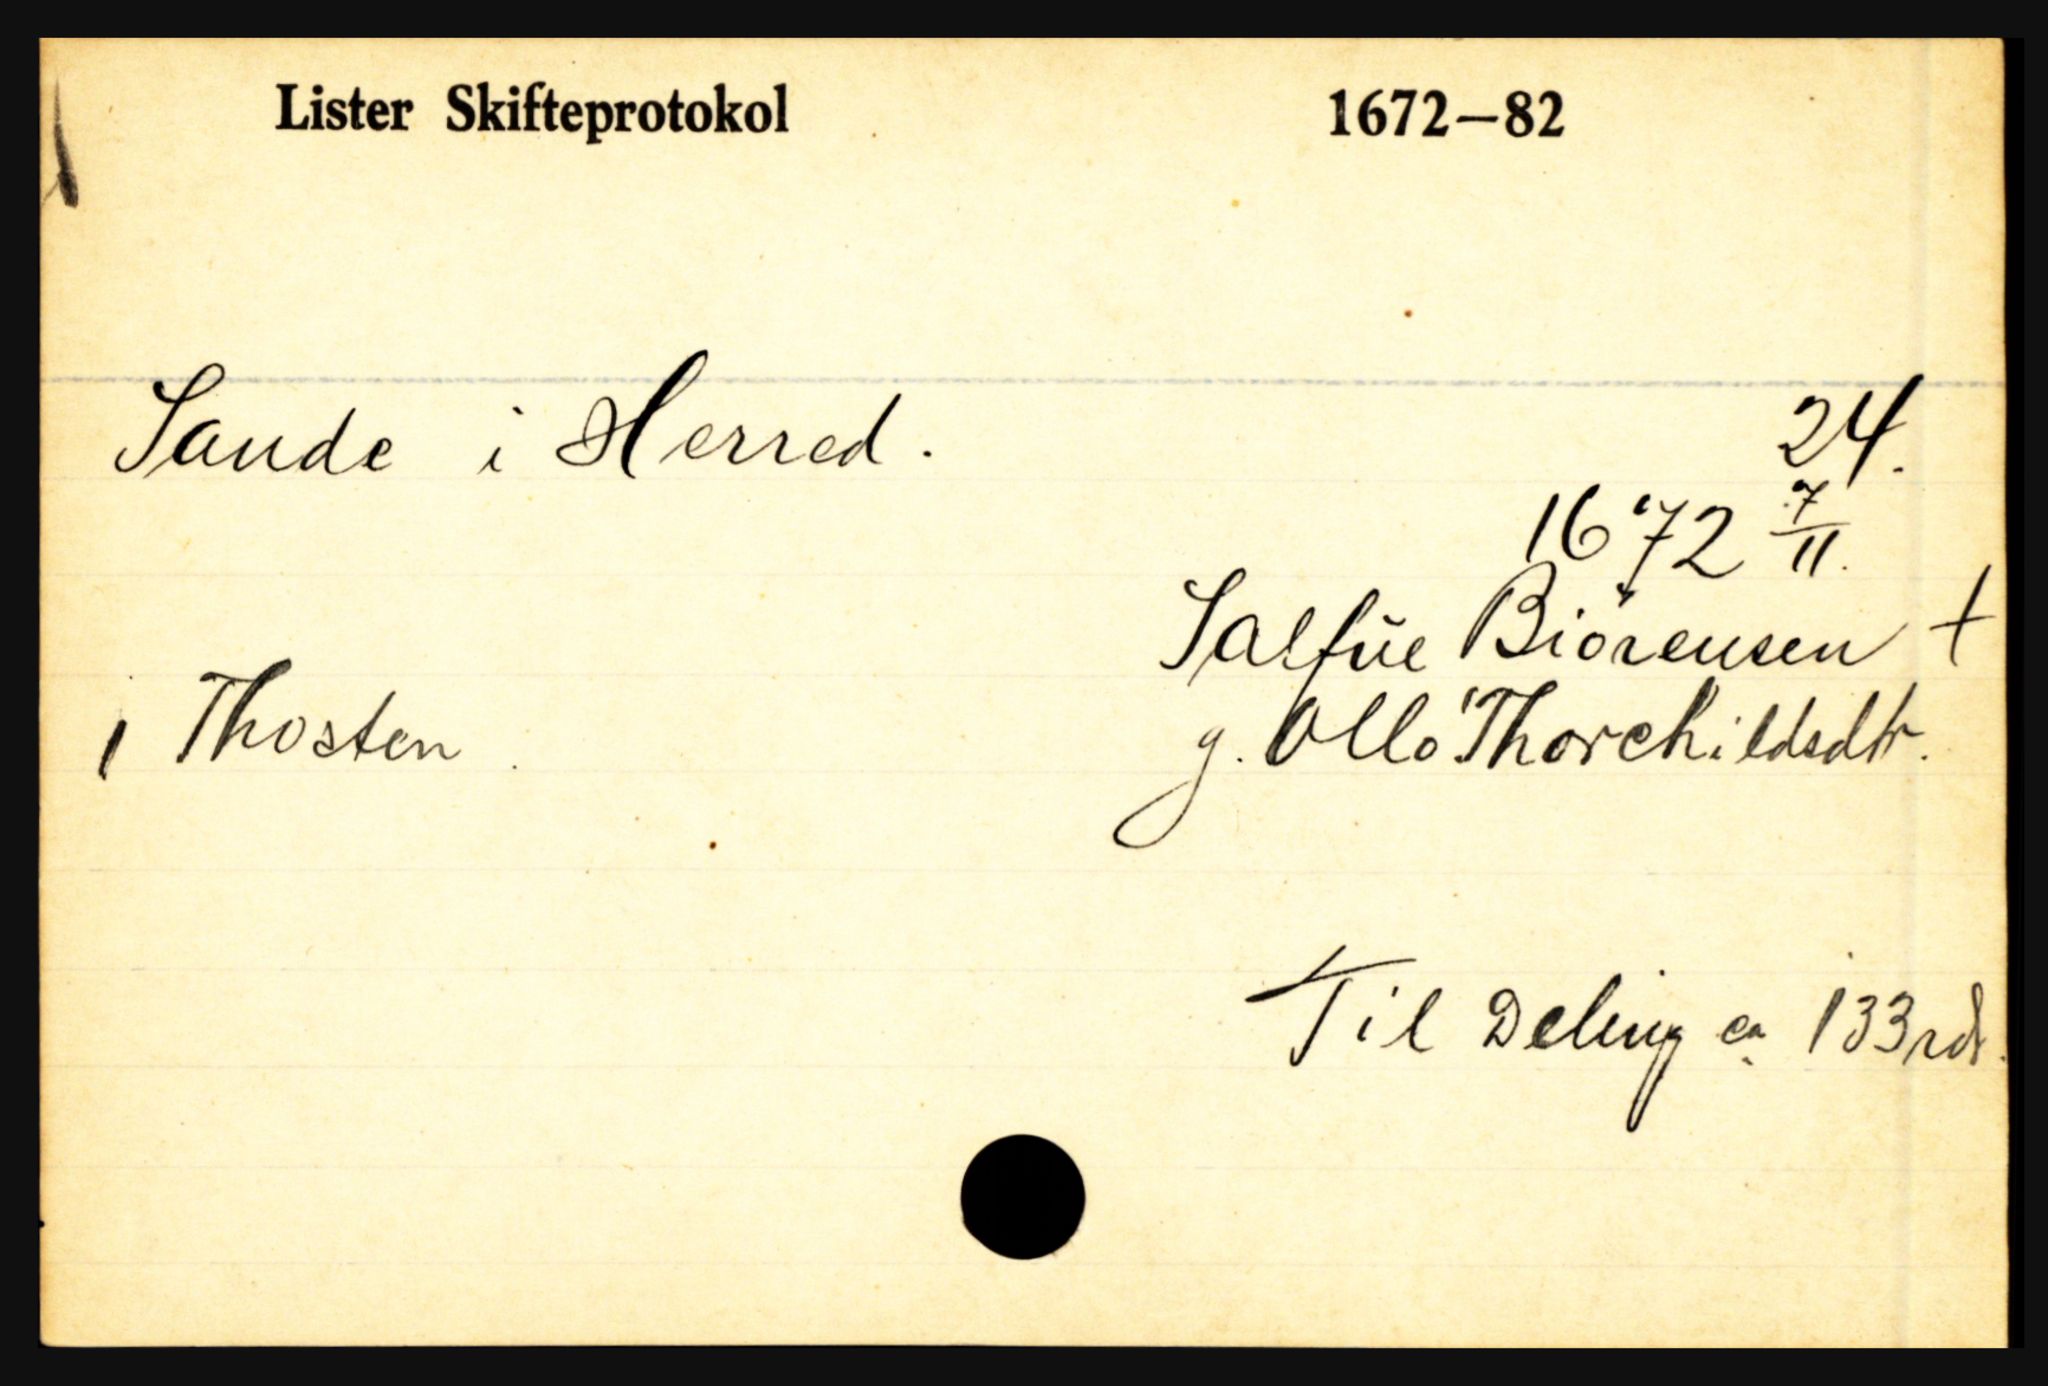 Lister Skifteprotokol 1672—82
Sande i Herred. 24.
1672 7/11.
Salfūe Biörensen +
1 Thosten g. Ollo Thorchildsdtr.
Til Deling ca 133 rdr.